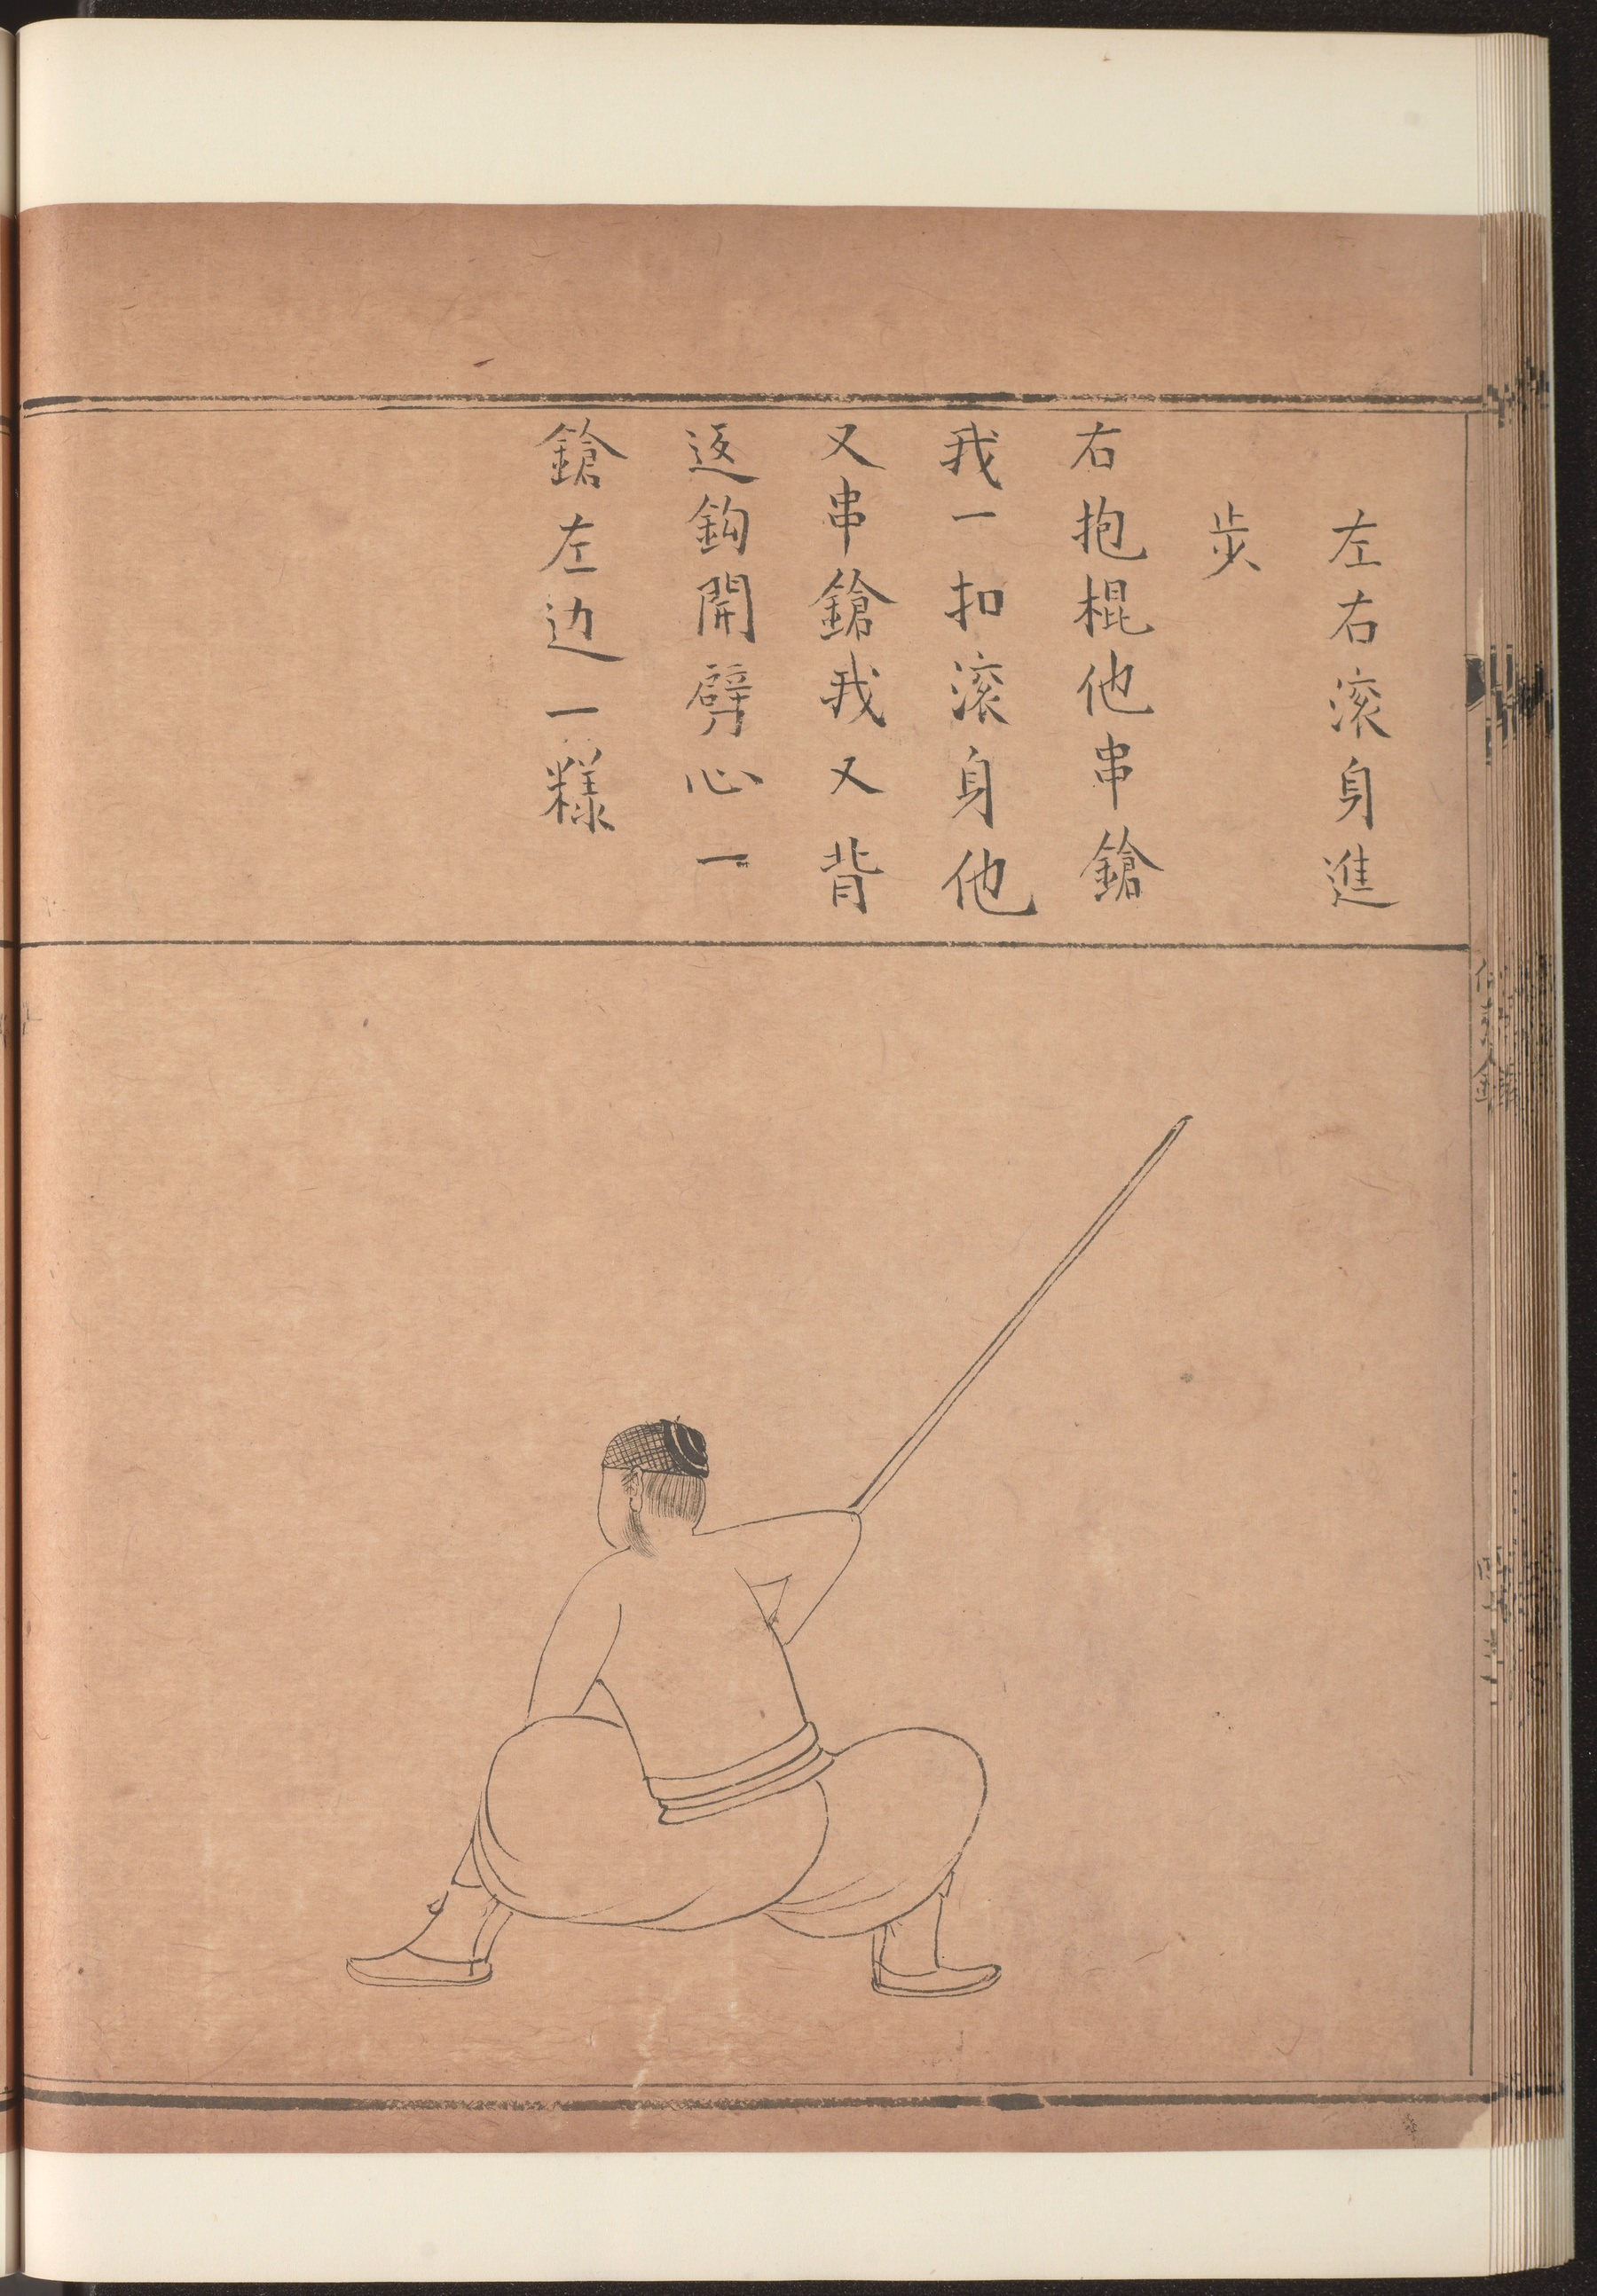 左右滚身進
步
右抱棍他串鎗
我一扣滚身他
又串鎗我又背
返鈎開劈心一
鎗左边一樣